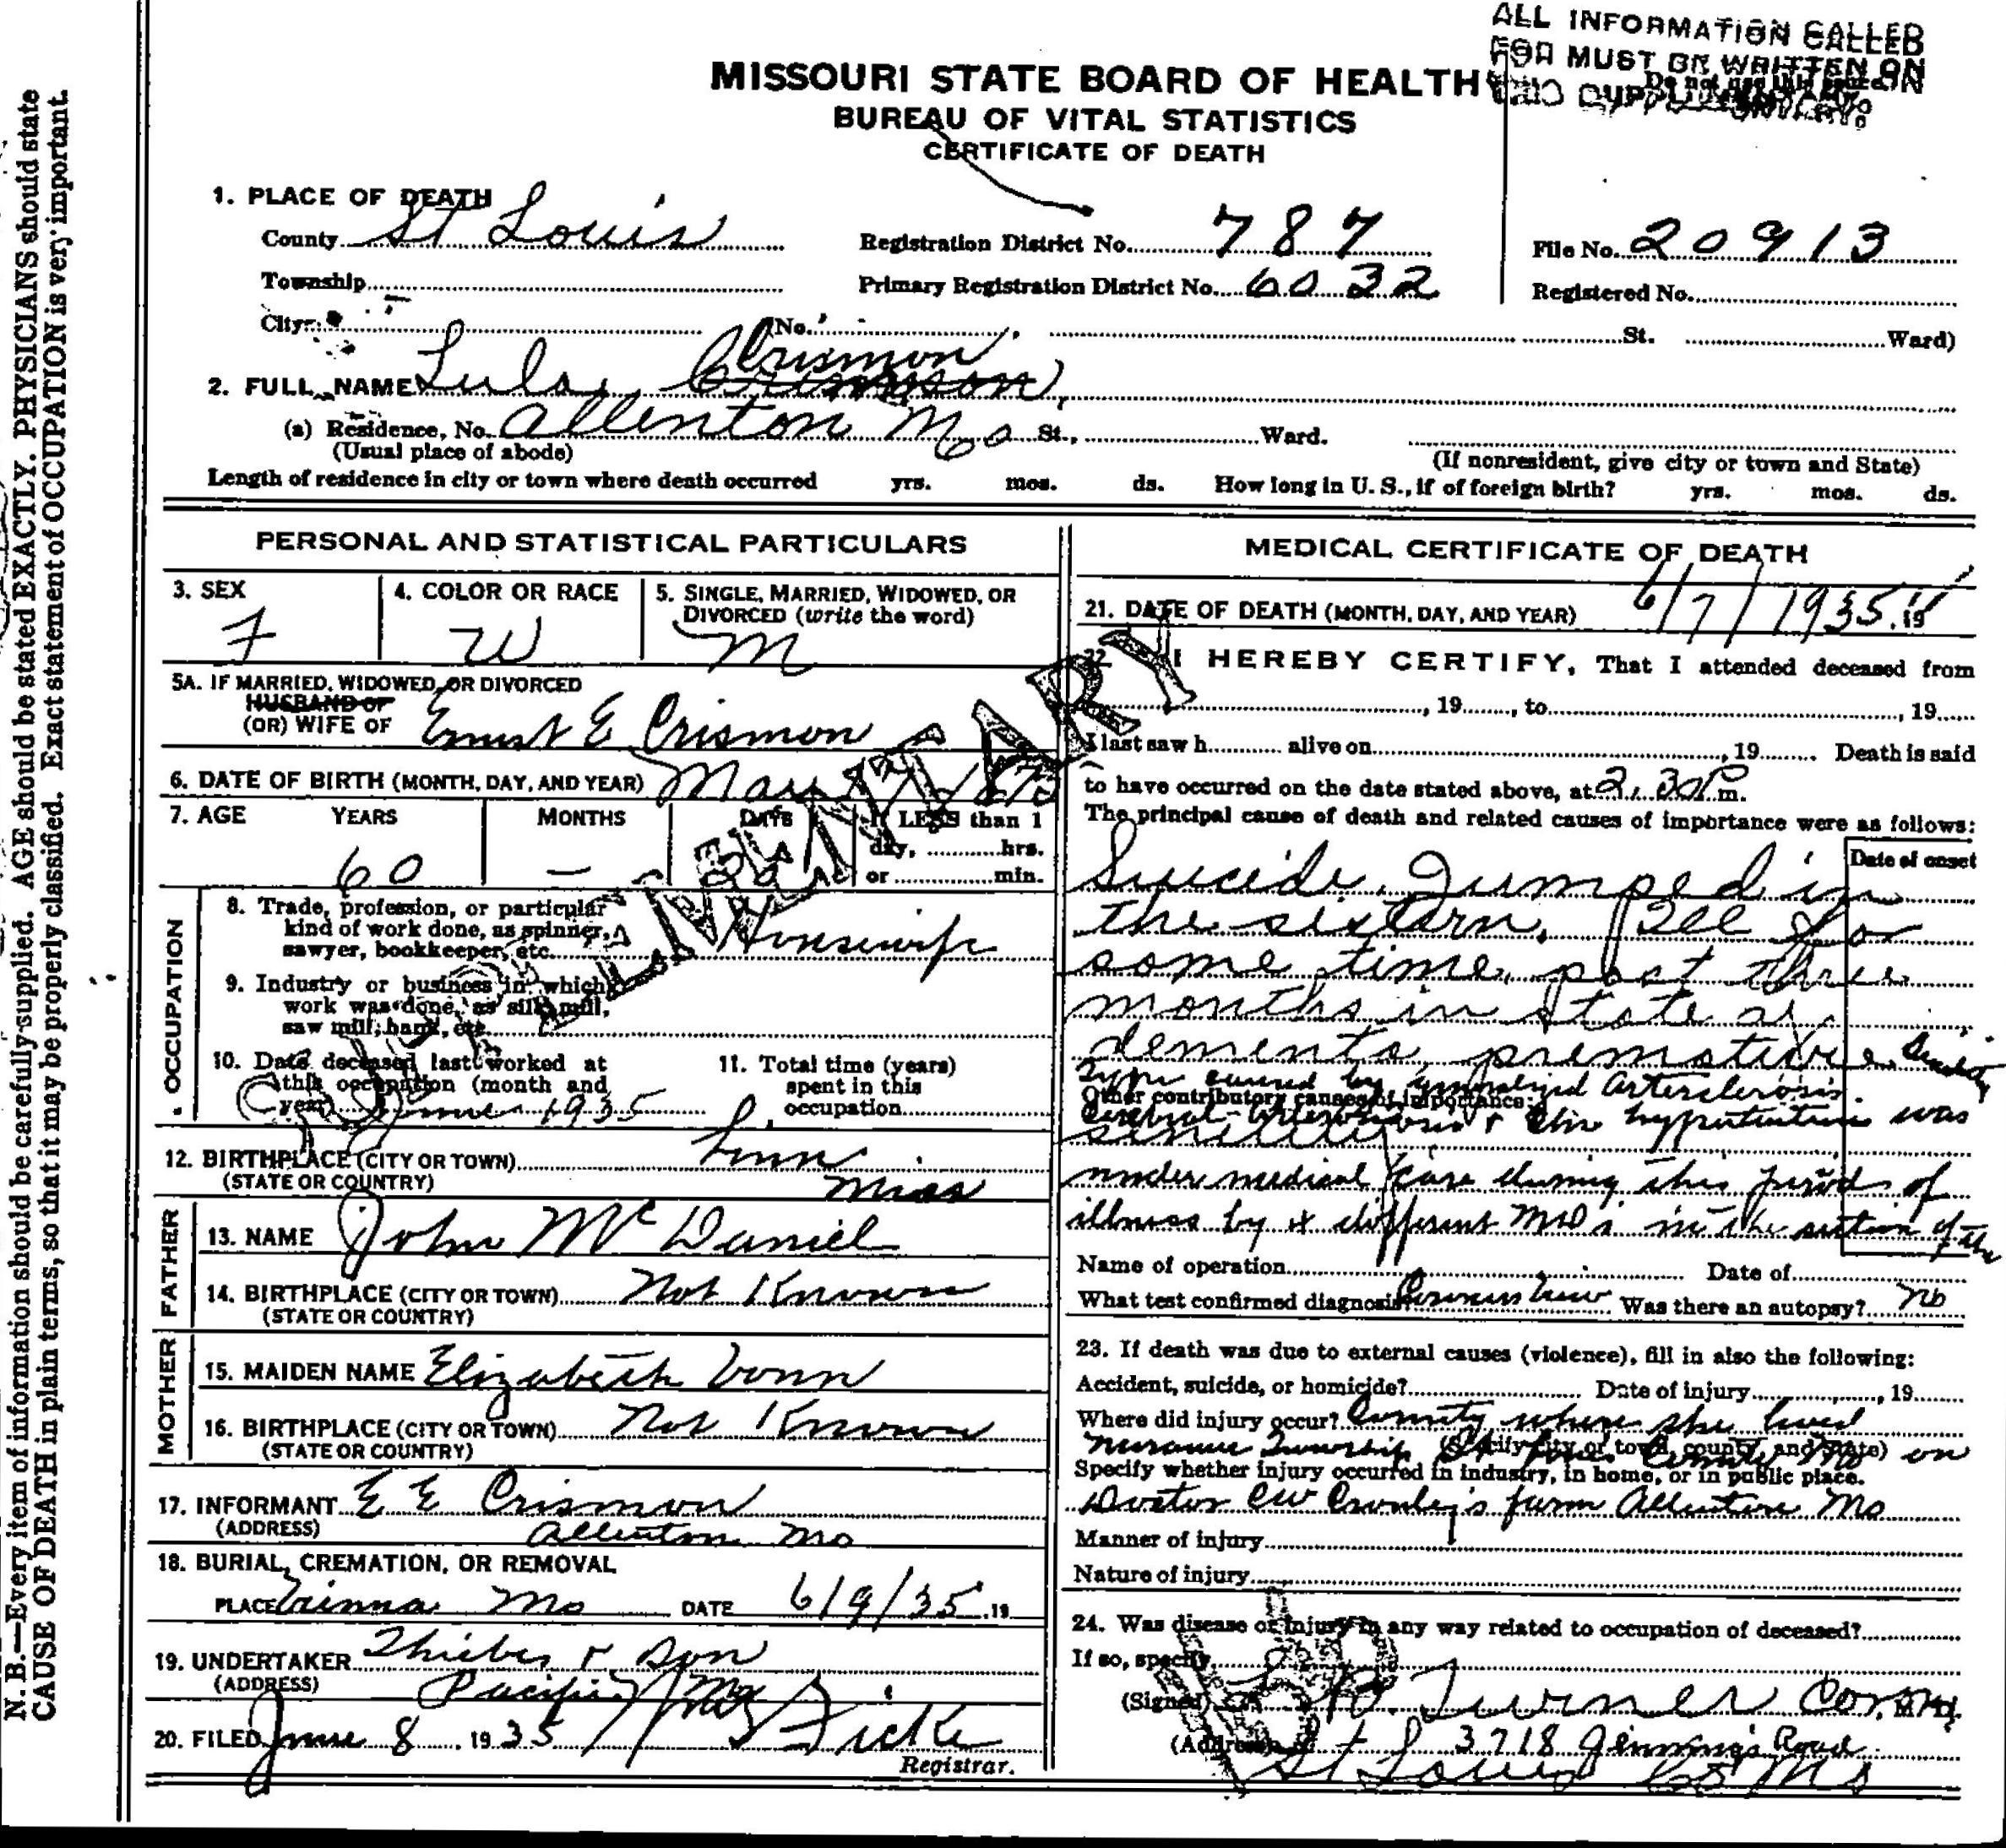 ALL INFORMATION CALLED
FOR MUST BE WRITTEN ON
MISSOURI STATE BOARD OF HEALTH
BUREAU OF VITAL STATISTICS
CERTIFICATE OF DEATH
1. PLACE OF DEATH
County St Louis Registration District No. 787 File No. 20913
Township Primary Registration District No. 6032 Registered No.
City (No. St. Ward)
Crismon
2. FULL NAME Lula
(a) Residence, No. Allenton Mo St., Ward.
(Usual place of abode) (If nonresident, give city or town and State)
Length of residence in city or town where death occurred yrs. mos. ds. How long in U. S., if of foreign birth? yrs. mos. ds.
PERSONAL AND STATISTICAL PARTICULARS
3. SEX 4. COLOR OR RACE 5. SINGLE, MARRIED, WIDOWED, OR
DIVORCED (write the word)
F W M
5A. IF MARRIED, WIDOWED, OR DIVORCED
HUSBAND OF
(OR) WIFE OF Ernest E Crismon
6. DATE OF BIRTH (MONTH, DAY, AND YEAR) May
7. AGE YEARS MONTHS DAYS If LESS than 1
day, hrs.
or min.
60 —
OCCUPATION
8. Trade, profession, or particular
kind of work done, as spinner,
sawyer, bookkeeper, etc. Housewife
9. Industry or business in which
work was done, as silk mill,
saw mill, bank, etc.
10. Date deceased last worked at
this occupation (month and
year) June 1935
11. Total time (years)
spent in this
occupation
12. BIRTHPLACE (CITY OR TOWN) Linn
(STATE OR COUNTRY) Miss
FATHER
13. NAME John McDaniel
14. BIRTHPLACE (CITY OR TOWN) Not Known
(STATE OR COUNTRY)
MOTHER
15. MAIDEN NAME Elizabeth Vonn
16. BIRTHPLACE (CITY OR TOWN) Not Known
(STATE OR COUNTRY)
17. INFORMANT E E Crismon
(ADDRESS) Allenton Mo
18. BURIAL, CREMATION, OR REMOVAL
PLACE Mo DATE 6/9/35, 19
19. UNDERTAKER Thiebes & Son
(ADDRESS) Pacific, Mo
20. FILED June 8, 1935 Ficke
Registrar.
MEDICAL CERTIFICATE OF DEATH
21. DATE OF DEATH (MONTH, DAY, AND YEAR) 6/7/1935, 19
22. I HEREBY CERTIFY, That I attended deceased from
, 19 , to , 19
I last saw h alive on , 19 Death is said
to have occurred on the date stated above, at 2:30 P m.
The principal cause of death and related causes of importance were as follows:
Date of onset
Suicide. Jumped in
the sistern. Ill for
some time, past three
months in state of
dementa
type caused by generalized Arterclerosis.
Other contributory causes of importance:
hypertention was
senility
under medical care during this period of
illness by 4 different MDs in the section of the
Name of operation Date of
What test confirmed diagnosis? Was there an autopsy? No
23. If death was due to external causes (violence), fill in also the following:
Accident, suicide, or homicide? Date of injury , 19
Where did injury occur? County where she lived
(Specify city or town, county, and State)
Township St Louis County Mo on
Specify whether injury occurred in industry, in home, or in public place.
Doctor CW farm Allenton Mo
Manner of injury
Nature of injury
24. Was disease or injury in any way related to occupation of deceased?
If so, specify
(Signed) Turner Coro, M.D.
(Address) 3718 Jennings Road
St Louis Co Mo
SUPPLEMENTARY
N. B.—Every item of information should be carefully supplied. AGE should be stated EXACTLY. PHYSICIANS should state
CAUSE OF DEATH in plain terms, so that it may be properly classified. Exact statement of OCCUPATION is very important.